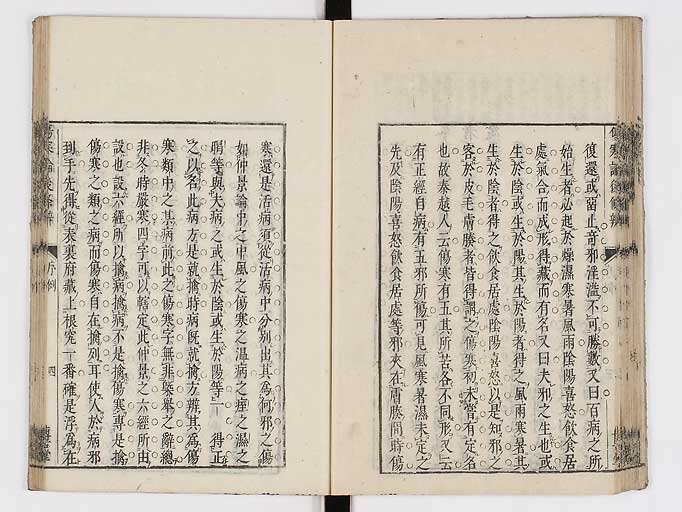 復還或留止奇邪淫溢不可勝數又曰百病之所
始生者必起於燥濕寒暑風雨陰陽喜怒飲食居
處氣合而成形得藏而有名又曰夫邪之生也或
生於陰或生於陽其生於陽者得之風雨寒暑其
生於陰者得之飲食居處陰陽喜怒以是知邪之
客於皮毛膚腠者皆得謂之傷寒初未嘗有定名
也故秦越人云傷寒有五其所苦各不同形又云
有正經自病有五邪所傷可見風寒暑濕未定之
先及陰陽喜怒飲食居處等邪夾在膚腠間時傷
寒還是活病須從活病中分別出其為何邪之傷
如仲景論中之中風之傷寒之溫病之痙之濕之
暍等與夫病之或生於陰或生於陽等一一得正
之以名此病方是就擒時病既就擒方辨其為傷
寒類中之某病前此之傷寒字無非槩舉之辭總
非冬時嚴寒四字可以轄定此仲景之六經所由
設也設六經所以擒病擒病不是擒傷寒專是擒
傷寒之類之病而傷寒自在擒列耳使人於病邪
到手先得從表裏府藏上根究一番確是浮為在
序例
四